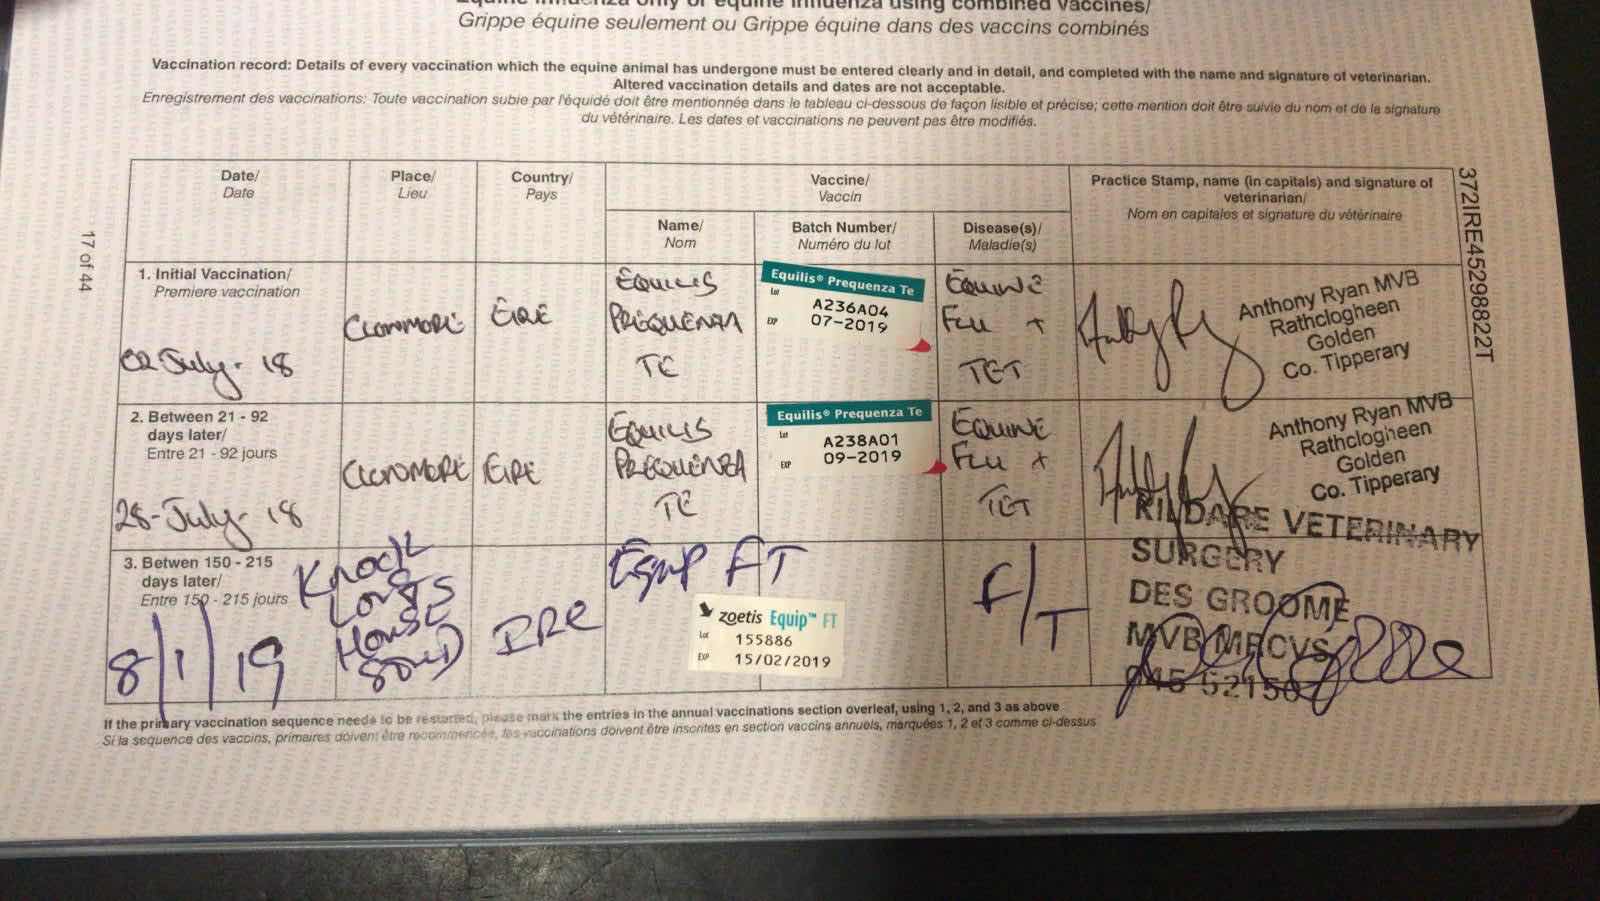 Equine influenza only or equine influenza using combined vaccines/
Grippe équine seulement ou Grippe équine dans des vaccins combinés
Vaccination record: Details of every vaccination which the equine animal has undergone must be entered clearly and in detail, and completed with the name and signature of veterinarian.
Altered vaccination details and dates are not acceptable.
Enregistrement des vaccinations: Toute vaccination subie par l'équidé doit être mentionnée dans le tableau ci-dessous de façon lisible et précise; cette mention doit être suivie du nom et de la signature
du vétérinaire. Les dates et vaccinations ne peuvent pas être modifiés.
17 of 44
372IRE45298822T
Date/
Date
Place/
Lieu
Country/
Pays
Vaccine/
Vaccin
Practice Stamp, name (in capitals) and signature of
veterinarian/
Nom en capitales et signature du vétérinaire
Name/
Nom
Batch Number/
Numéro du lot
Disease(s)/
Maladie(s)
1. Initial Vaccination/
Premiere vaccination
02 July - 18
CLONMORE
EIRE
EQUILIS
PREQUENZA
TE
Equilis® Prequenza Te
Lot
A236A04
EXP
07-2019
EQUINE
FLU +
TET
Anthony Ryan MVB
Rathclogheen
Golden
Co. Tipperary
2. Between 21 - 92
days later/
Entre 21 - 92 jours
28-July-18
CLONMORE
EIRE
EQUILIS
PREQUENZA
TE
Equilis® Prequenza Te
Lot
A238A01
EXP
09-2019
EQUINE
FLU +
TET
Anthony Ryan MVB
Rathclogheen
Golden
Co. Tipperary
3. Betwen 150 - 215
days later/
Entre 150 - 215 jours
8/1/19
Knock
House
STUD
IRE
Equip FT
zoetis Equip™ FT
Lot
155886
EXP
15/02/2019
F/T
KILDARE VETERINARY
SURGERY
DES GROOME
MVB MRCVS
045 52150
If the primary vaccination sequence needs to be restarted, please mark the entries in the annual vaccinations section overleaf, using 1, 2, and 3 as above
Si la sequence des vaccins, primaires doivent être recommencée, les vaccinations doivent être inscrites en section vaccins annuels, marquées 1, 2 et 3 comme ci-dessus